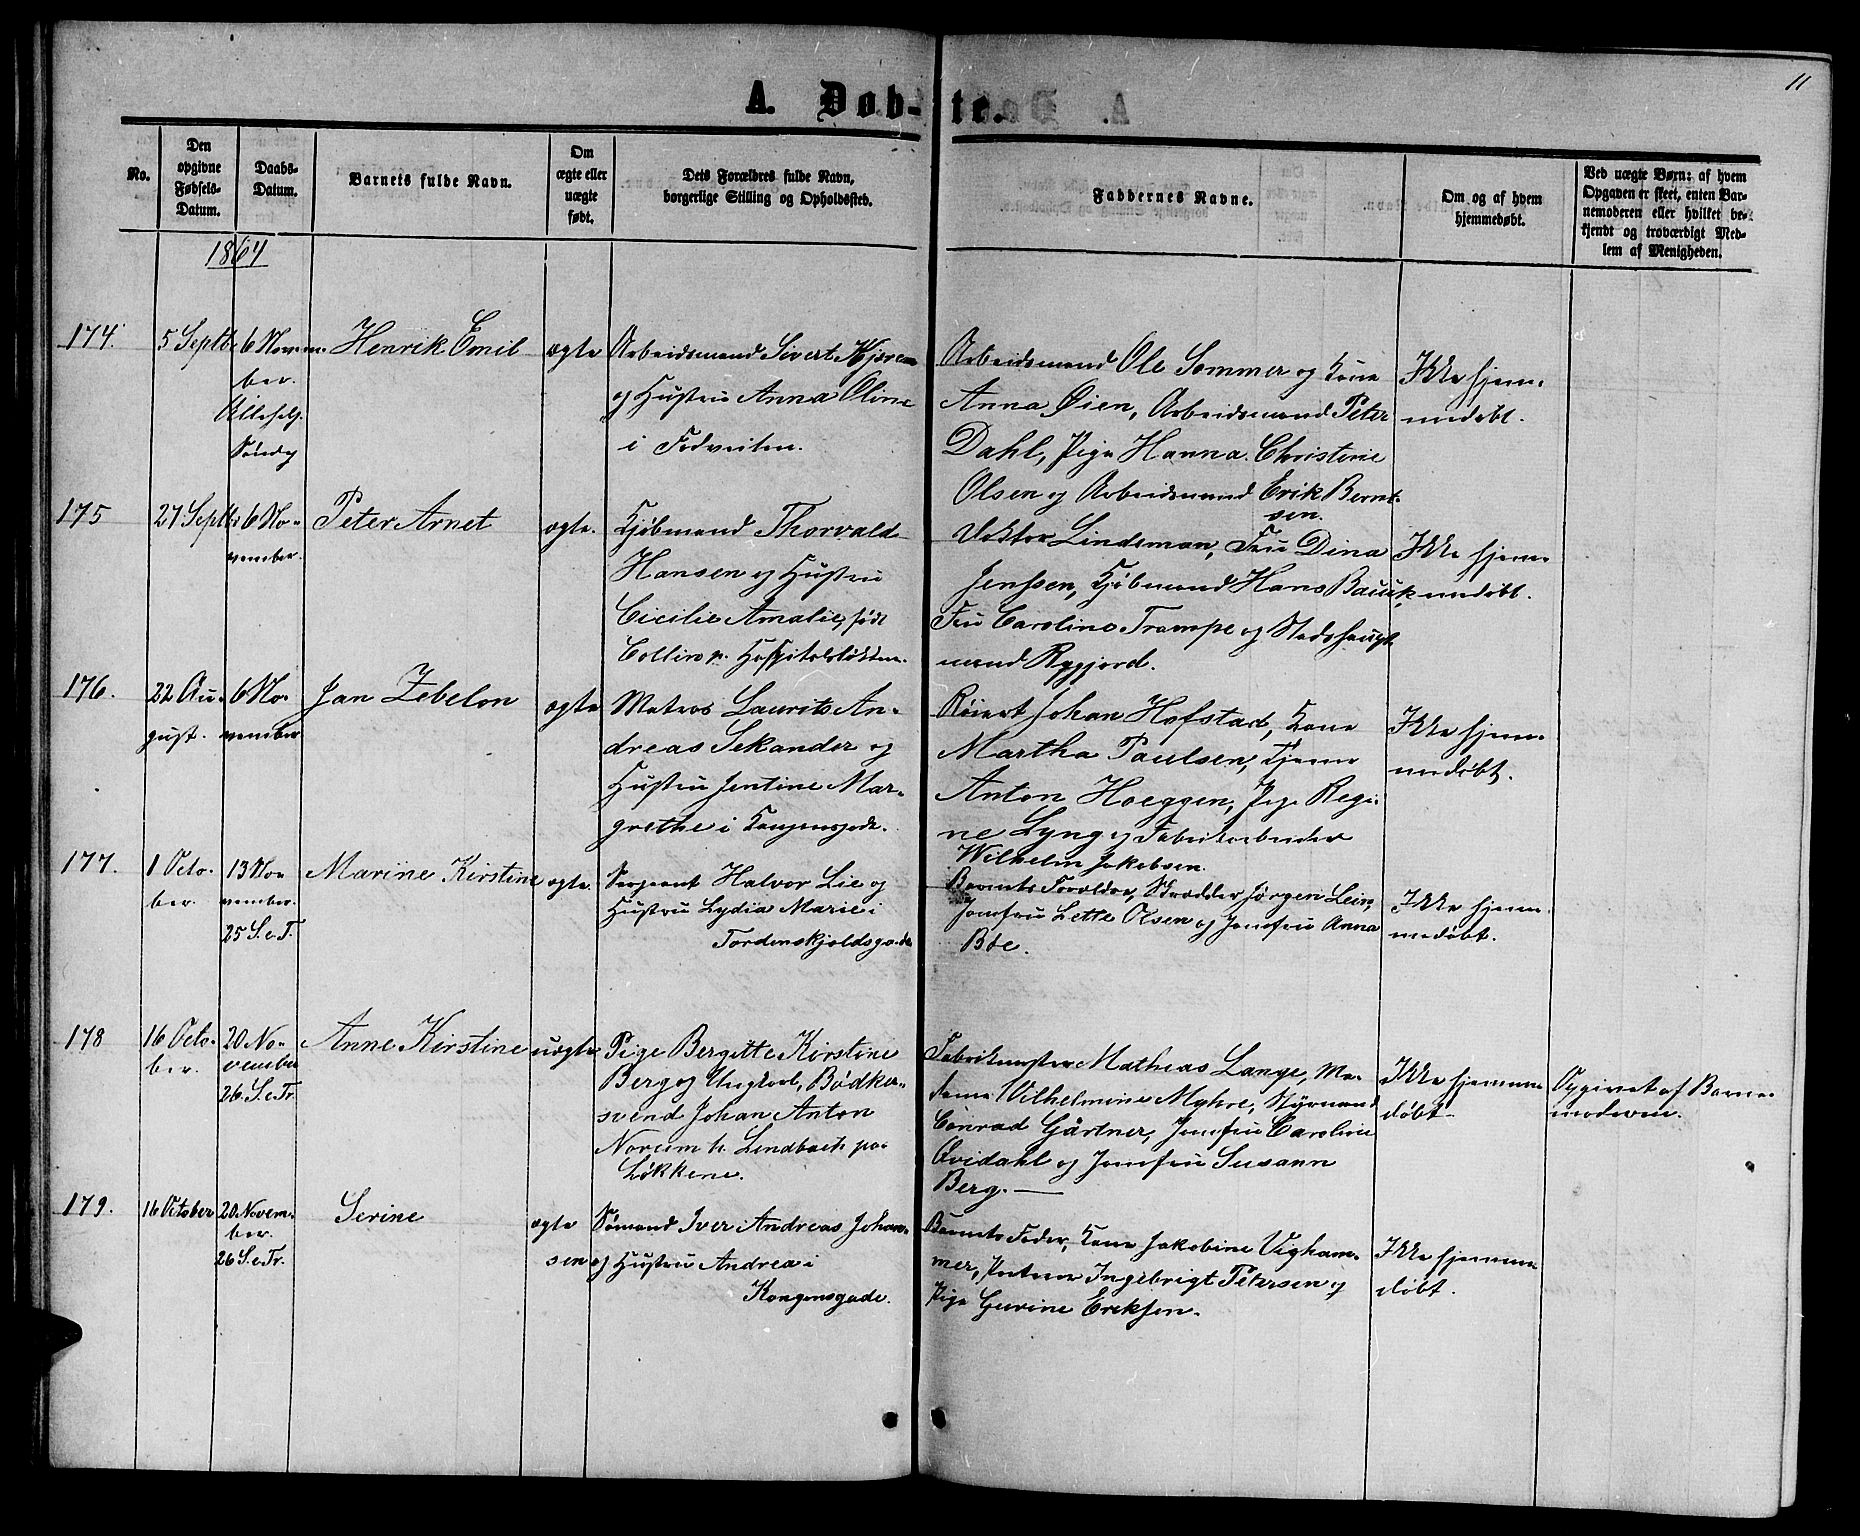 11
A. Døb-te.
No.
Den opgivne Fødsels-Datum.
Daabs-Datum.
Barnets fulde Navn.
Om ægte eller uægte født.
Dets Forældres fulde Navn, borgerlige Stilling og Opholdssted.
Faddernes Navne.
Om og af hvem hjemmedøbt.
Ved uægte Børn: af hvem Opgaven er skeet, enten Barnemoderen eller hvilket bekjendt og troværdigt Medlem af Menigheden.
1864
174.
5 Septbr
6 Novem-
ber.
Allehelg.
Søndag
Henrik Emil
ægte
Arbeidsmand Sivert Kjøren
og Hustru Anna Oline
i Fedveiten.
Arbeidsmand Ole Sommer og Kone
Anna Øien, Arbeidsmand Peter
Dahl, Pige Hanna Christine
Olsen og Arbeidsmand Erik Bernt-
sen.
Ikke hjem-
medøbt.
175
27 Septbr
6 No-
vember.
Peter Arnet
ægte.
Kjøbmand Thorvald
Hansen og Hustru
Cicilie Amalie, født
Collin p. Hospitalsløkken.
Doktor Lindeman, Fru Dina
Jenssen, Kjøbmand Hans Bauck,
Fru Caroline Trampe og Stadshaupt-
mand Rygjord.
Ikke hjem-
medøbt.
176.
22 Au-
gust.
6 No-
vember
Jan Zebelon
ægte
Matros Laurits An-
dreas Sekander og
Hustru Jentine Mar-
grethe i Kongensgade.
Røiert Johan Hofstad, Kone
Martha Paulsen, Tjener
Anton Hoeggen, Pige Regi-
ne Lyng og Fabrikarbeider
Wilhelm Jakobsen.
Ikke hjem-
medøbt.
177.
1 Octo-
ber.
13 No-
vember.
25 S. e. T.
Marine Kirstine
ægte.
Sergeant Halvor Lie og
Hustru Lydia Marie i
Tordenskjoldsgaden
Barnets Forældre, Skrædder Jørgen Lein,
Jomfru Lette Olsen og Jomfru Anna
Böe.
Ikke hjem-
medøbt.
178
16 Octo-
ber.
20 No-
vember
26 S. e. Tr.
Anne Kirstine
uægte
Pige Bergitte Kirstine
Berg og Ungkarl, Bødker-
svend Johan Anton
Noreim h. Lindbach paa
Løkkene.
Fabrikmester Matheas Lange, Ma-
dame Wilhelmine Myhre, Styrmand
Conrad Gärtner, Jomfru Caroline
Qvidahl og Jomfru Susann
Berg.
Ikke hjemme-
døbt
Opgivet af Barne-
moderen.
179.
16 October
20 Novem-
ber.
26 S. e. Tr.
Serine
ægte
Sømand Iver Andreas Johan-
sen og Hustru Andrea i
Kongensgade.
Barnets Fader, Kone Jakobine Vigham-
mer, Ingebrigt Petersen og
Pige Gurine Eriksen.
Ikke hjemme-
døbt.